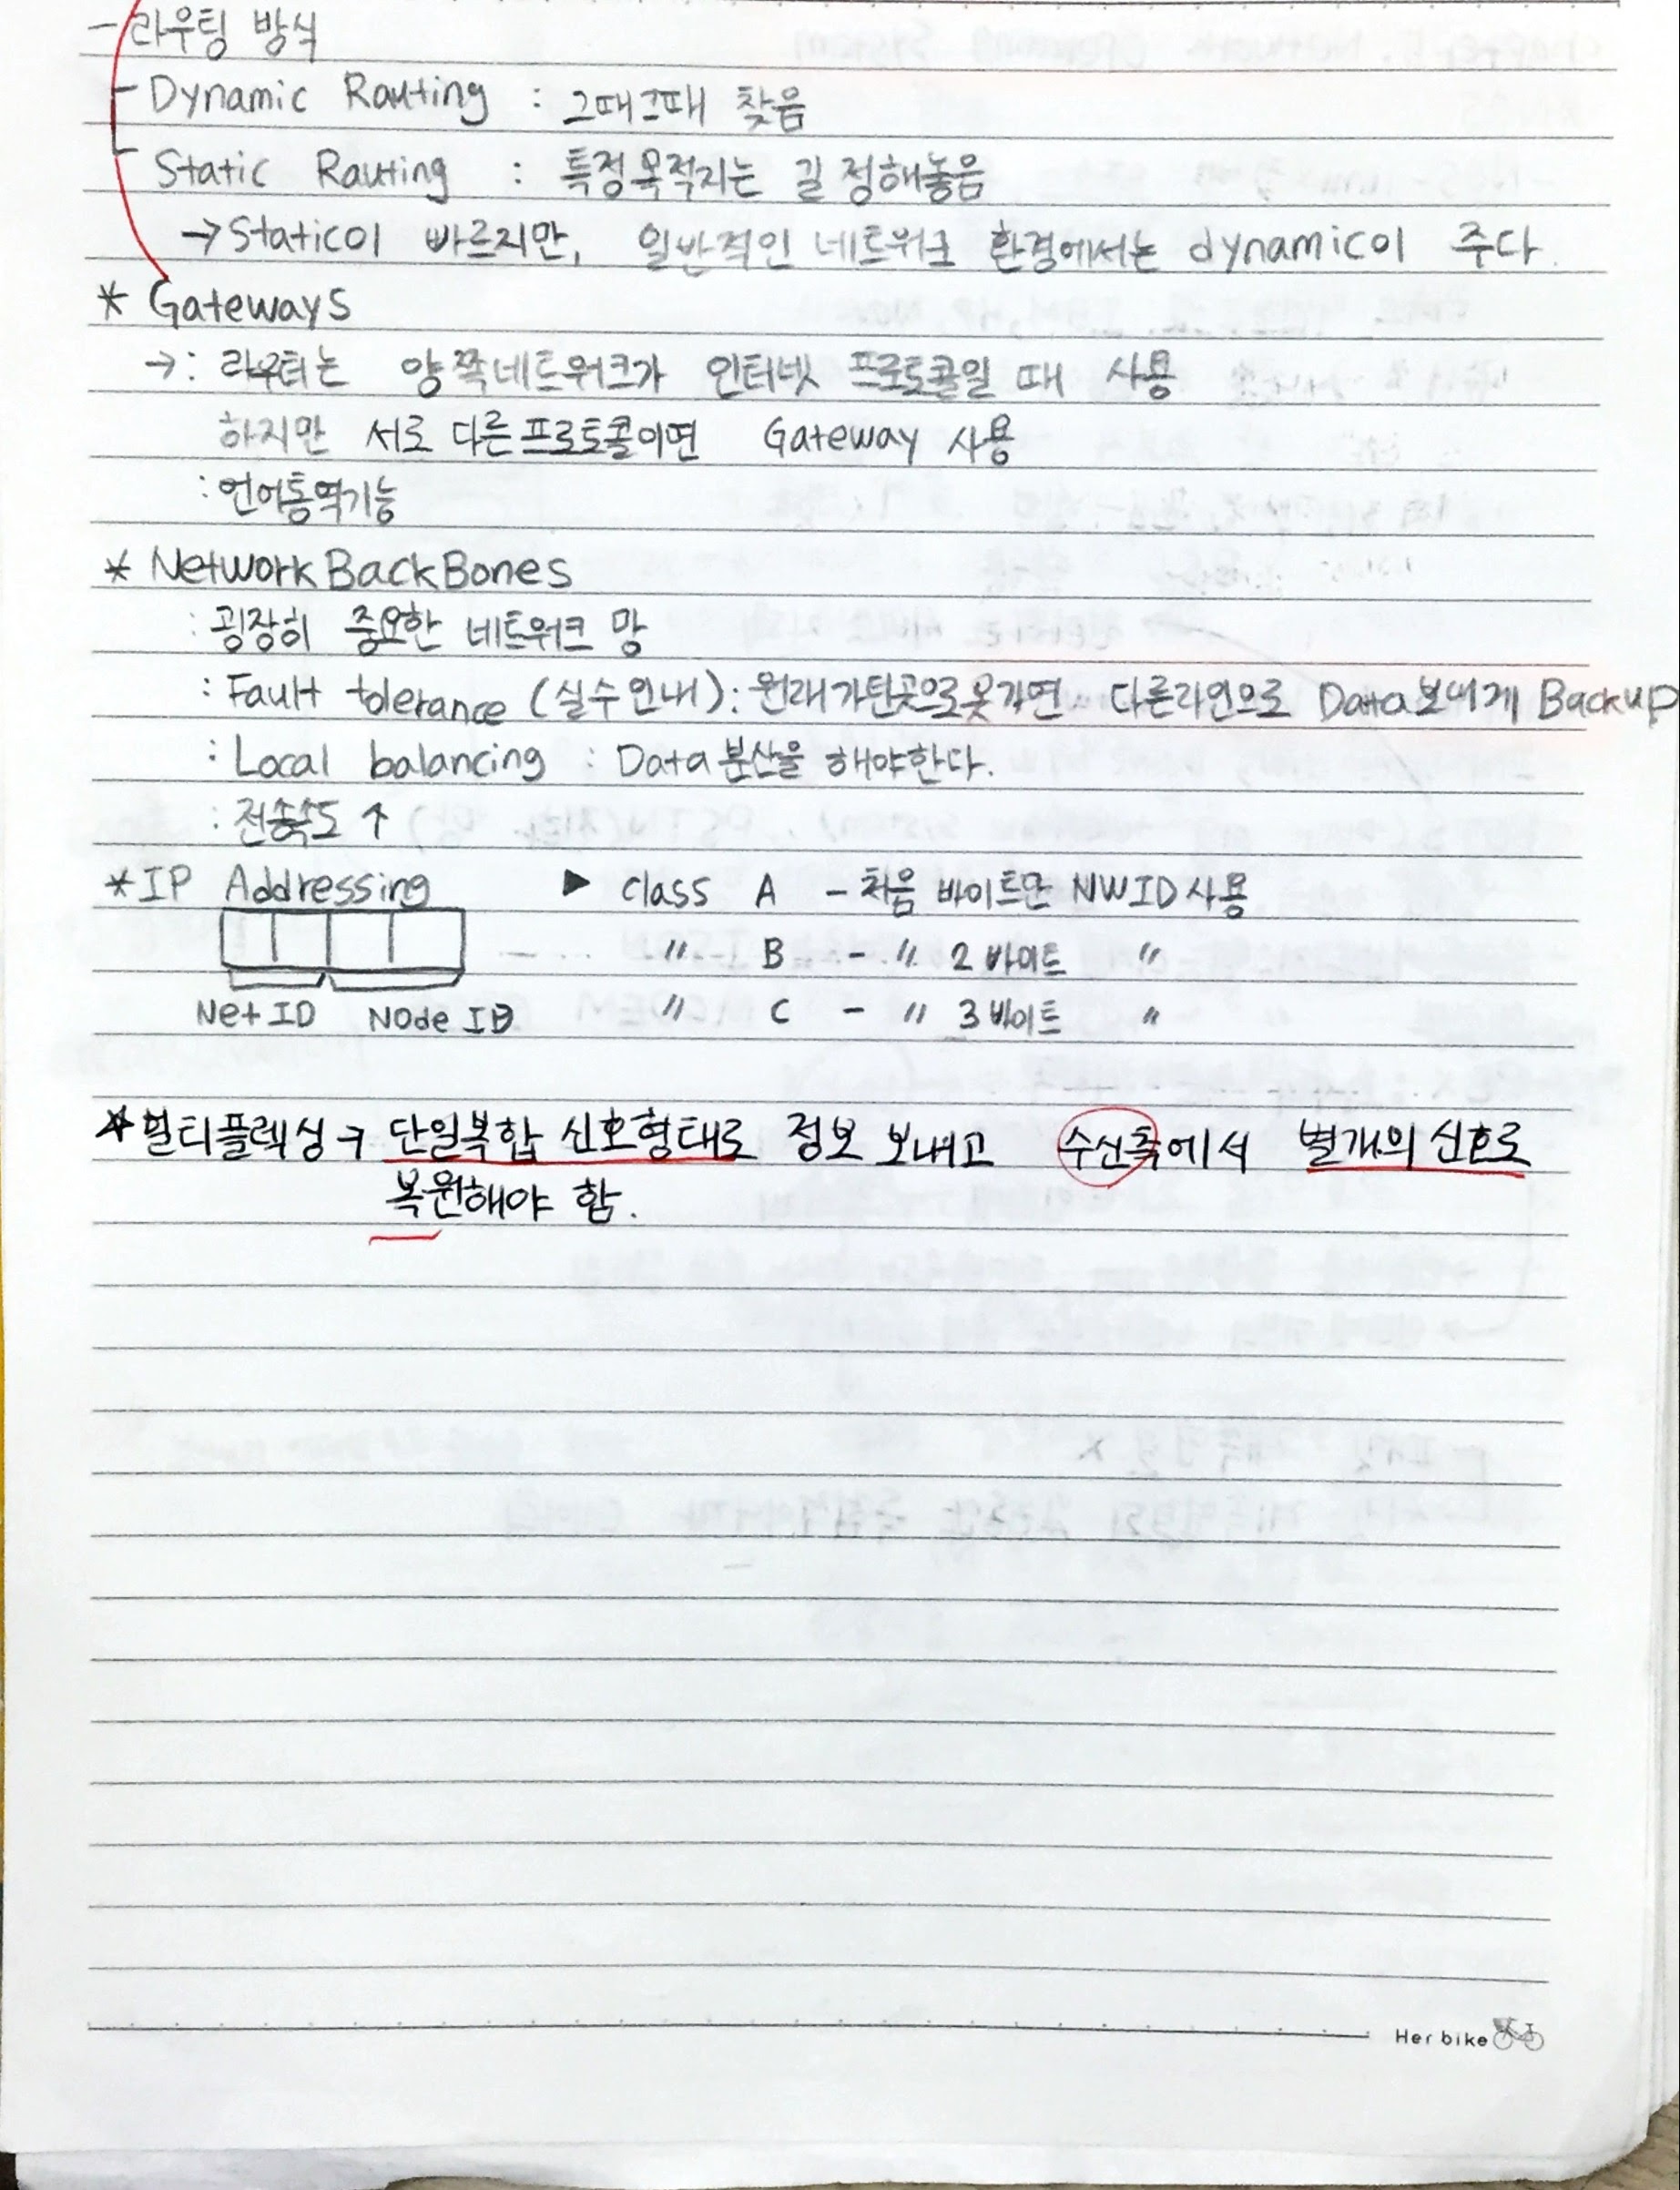 - 라우팅 방식
- Dynamic Routing : 그때그때 찾음
- Static Routing : 특정목적지는 길 정해놓음
→ Static이 빠르지만, 일반적인 네트워크 환경에서는 dynamic이 주다.
* Gateways
→ : 라우터는 양쪽네트워크가 인터넷 프로토콜일 때 사용
하지만 서로 다른프로토콜이면 Gateway 사용
: 언어통역기능
* Network BackBones
: 굉장히 중요한 네트워크 망
: Fault tolerance (실수인내) : 원래가던곳으로못가면 다른라인으로 Data보내게 Backup
: Local balancing : Data분산을 해야한다.
: 전송속도 ↑
* IP Addressing ▶ class A - 처음 바이트만 NWID사용
〃 B - 〃 2 바이트 〃
Net ID Node ID 〃 C - 〃 3 바이트 〃
* 멀티플렉싱 → 단일복합 신호형태로 정보 보내고 수신측에서 별개의 신호로
복원해야 함.
Her bike